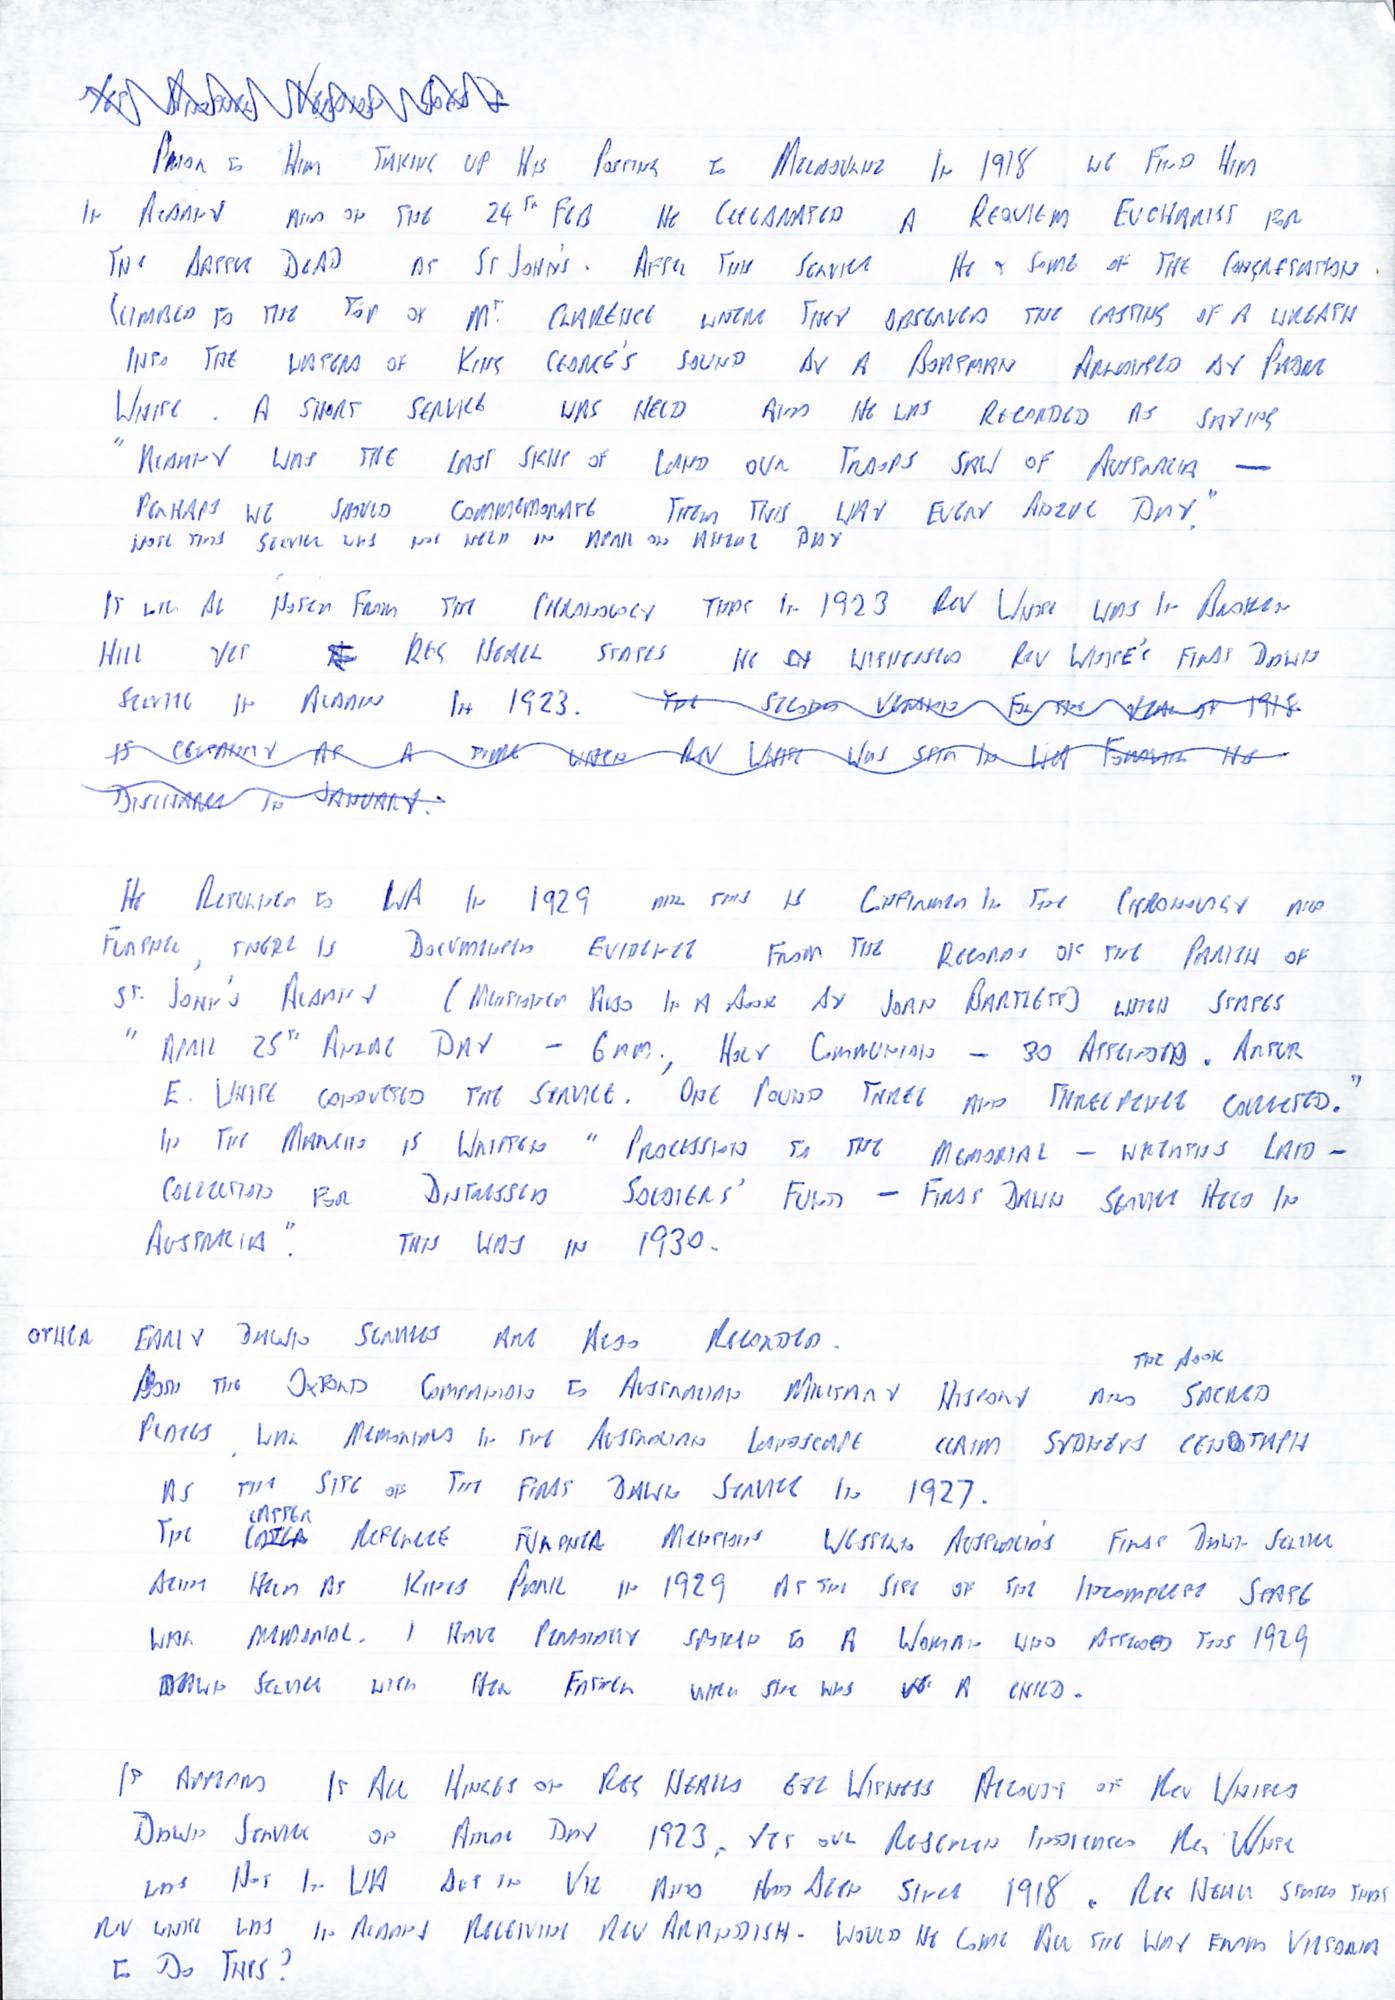 PRIOR TO HIM TAKING UP HIS POSTING TO MELBOURNE IN 1918 WE FIND HIM
IN ALBANY AND ON THE 24TH FEB HE CELEBRATED A REQUIEM EUCHARIST FOR
THE BATTLE DEAD AT ST JOHN'S. AFTER THIS SERVICE HE & SOME OF THE CONGREGATION
CLIMBED TO THE TOP OF MT. CLARENCE WHERE THEY OBSERVED THE CASTING OF A WREATH
INTO THE WATERS OF KING GEORGE'S SOUND BY A BOATMAN ARRANGED BY PADRE
WHITE. A SHORT SERVICE WAS HELD AND HE WAS RECORDED AS SAYING
"ALBANY WAS THE LAST SIGHT OF LAND OUR TROOPS SAW OF AUSTRALIA —
PERHAPS WE SHOULD COMMEMORATE THEM THIS WAY EVERY ANZAC DAY."
NOTE THIS SERVICE WAS NOT HELD IN APRIL OR ANZAC DAY
IT WILL BE NOTED FROM THE CHRONOLOGY THAT IN 1923 REV WHITE WAS IN BROKEN
HILL YET REG NEALL STATES HE WITNESSED REV WHITE'S FIRST DAWN
SERVICE IN ALBANY IN 1923. THE SECOND VERSION FOR THE YEAR OF 1918
IS CERTAINLY AT A TIME WHEN REV WHITE WAS STILL IN WA FOLLOWING HIS
DISCHARGE IN JANUARY.
HE RETURNED TO WA IN 1929 AND THIS IS CONFIRMED IN THE CHRONOLOGY AND
FURTHER, THERE IS DOCUMENTED EVIDENCE FROM THE RECORDS OF THE PARISH OF
ST. JOHN'S ALBANY (MENTIONED ALSO IN A BOOK BY JOAN BARTLETT) WHICH STATES
"APRIL 25TH ANZAC DAY - 6AM., HOLY COMMUNION - 30 ATTENDED. ARTHUR
E. WHITE CONDUCTED THE SERVICE. ONE POUND THREE AND THREEPENCE COLLECTED."
IN THE MARGIN IS WRITTEN "PROCESSION TO THE MEMORIAL - WREATHS LAID -
COLLECTION FOR DISTRESSED SOLDIERS' FUND - FIRST DAWN SERVICE HELD IN
AUSTRALIA". THIS WAS IN 1930.
OTHER EARLY DAWN SERVICES ARE ALSO RECORDED.
THE BOOK
BOTH THE OXFORD COMPANION TO AUSTRALIAN MILITARY HISTORY AND SACRED
PLACES, WAR MEMORIALS IN THE AUSTRALIAN LANDSCAPE CLAIM SYDNEYS CENOTAPH
AS THE SITE OF THE FIRST DAWN SERVICE IN 1927.
THE LATTER REFERENCE FURTHER MENTIONS WESTERN AUSTRALIA'S FIRST DAWN SERVICE
BEING HELD AT KINGS PARK IN 1929 AT THE SITE OF THE INCOMPLETE STATE
WAR MEMORIAL. I HAVE PERSONALLY SPOKEN TO A WOMAN WHO ATTENDED THIS 1929
DAWN SERVICE WITH HER FATHER WHEN SHE WAS A CHILD.
IT APPEARS IT ALL HINGES ON REG NEALLS EYE WITNESS ACCOUNT OF REV WHITES
DAWN SERVICE ON ANZAC DAY 1923, YET OUR RESEARCH INDICATES REV WHITE
WAS NOT IN WA BUT IN VIC AND HAD BEEN SINCE 1918. REG NEALL STATES THAT
REV WHITE WAS IN ALBANY RELIEVING REV BRANDISH. WOULD HE COME ALL THE WAY FROM VICTORIA
TO DO THIS?